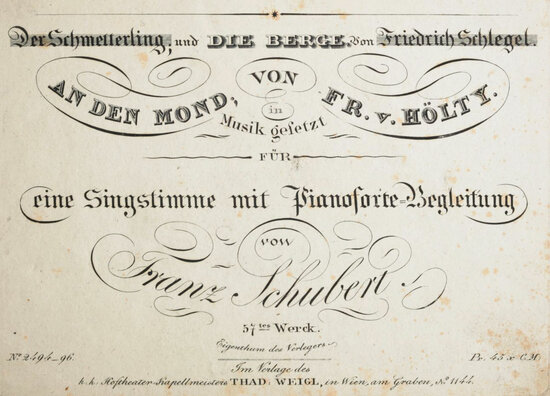 Der Schmetterling, und DIE BERGE. Von Friedrich Schlegel.
AN DEN MOND, VON FR. v. HÖLTY.
in
Musik gesetzt
FÜR
eine Singstimme mit Pianoforte=Begleitung
von
Franz Schubert.
57tes Werck.
Eigenthum des Verlegers.
No. 2494_96.
Pr. 45 x C.M.
Im Verlage des
k. k. Hoftheater-Kapellmeisters THAD: WEIGL, in Wien, am Graben, No. 1144.